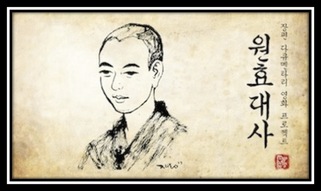 장편 다큐멘타리 영화 프로젝트
원효대사